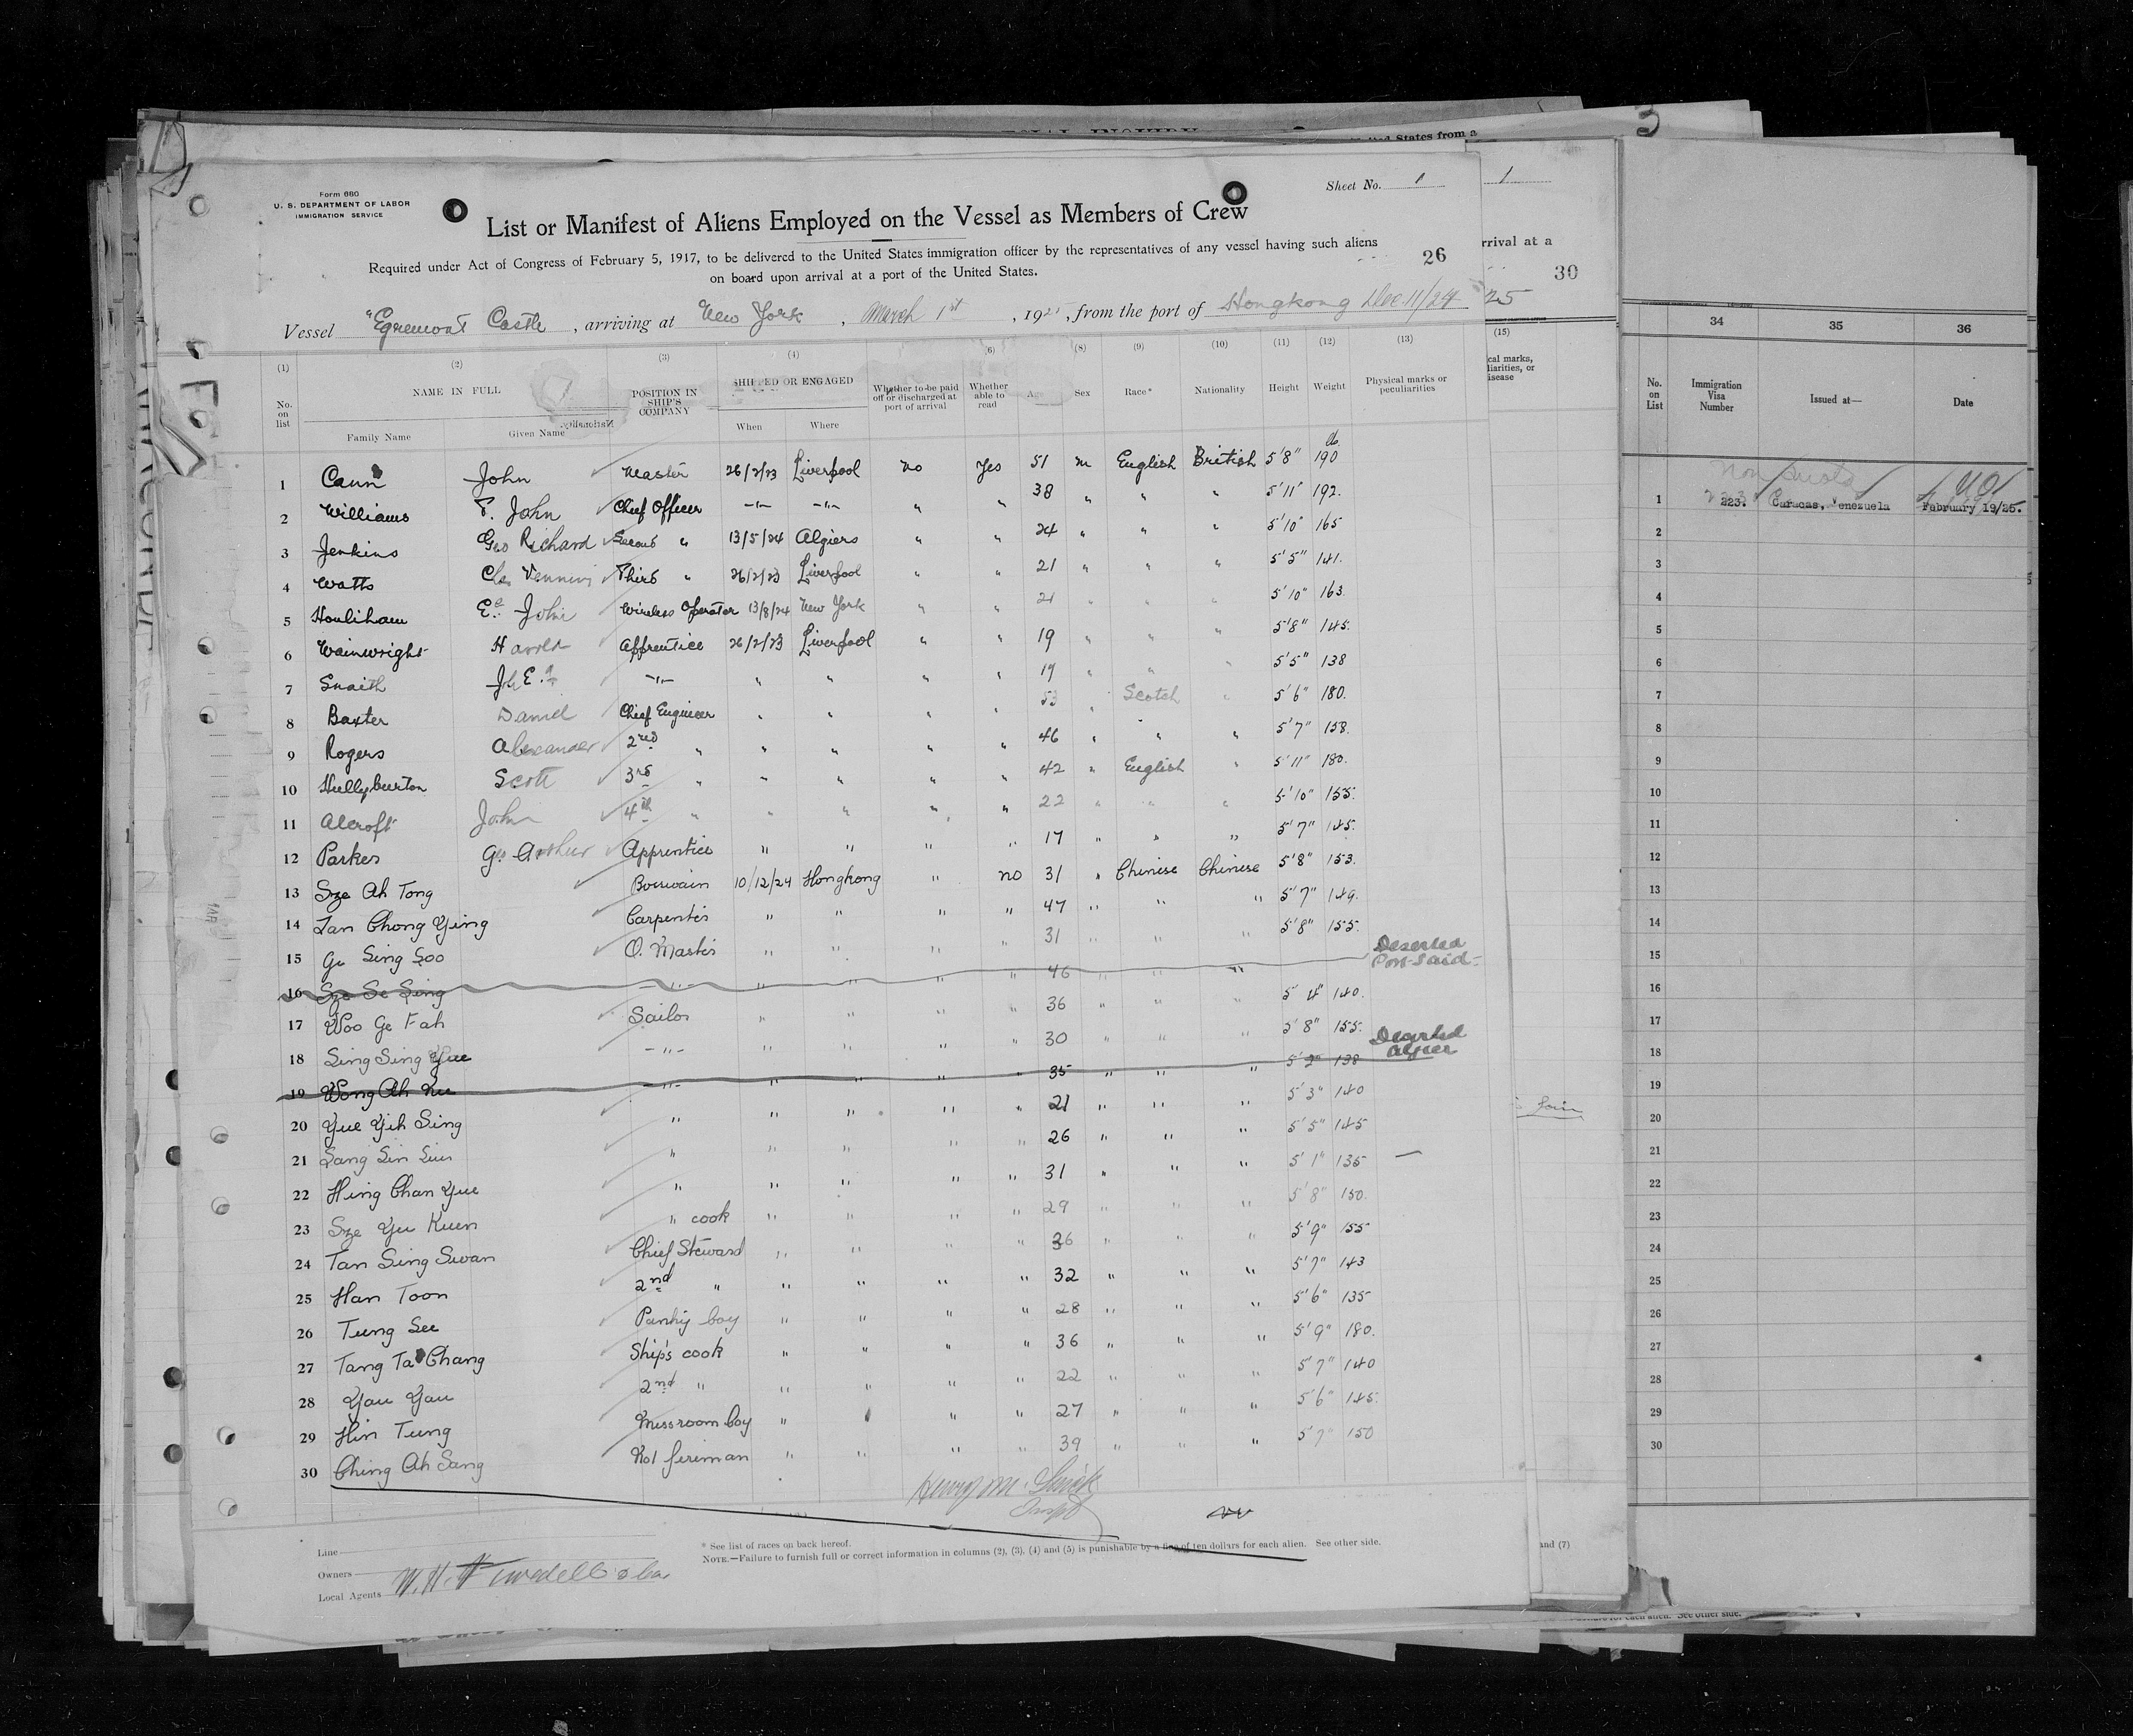 Form 680
U. S. DEPARTMENT OF LABOR
IMMIGRATION SERVICE
Sheet No. 1
List or Manifest of Aliens Employed on the Vessel as Members of Crew
Required under Act of Congress of February 5, 1917, to be delivered to the United States immigration officer by the representatives of any vessel having such aliens
on board upon arrival at a port of the United States.
26
Vessel "Egremont Castle, arriving at New York, March 1st, 192, from the port of Hongkong Dec. 11/24
(1) (2) (3) (4) (6) (8) (9) (10) (11) (12) (13)
No. on list NAME IN FULL Family Name Given Name POSITION IN SHIP'S COMPANY SHIPPED OR ENGAGED When Where Whether to be paid off or discharged at port of arrival Whether able to read Age Sex Race* Nationality Height Weight Physical marks or peculiarities
1 Cann John Master 26/2/23 Liverpool no Yes 51 m English British 5'8" 190
2 Williams F. John Chief Officer -"- -"- " " 38 " " " 5'11" 192.
3 Jenkins Geo Richard Second " 13/5/24 Algiers " " 24 " " " 5'10" 165
4 Watts Third " 26/2/23 Liverpool " " 21 " " " 5'5" 141.
5 Houliham John Wireless Operator 13/8/24 New York " " 21 " " " 5'10" 163.
6 Wainwright Harold Apprentice 26/2/23 Liverpool " " 19 " " " 5'8" 145.
7 Snaith -"- " " " " 19 " " " 5'5" 138
8 Baxter Daniel Chief Engineer " " " " 53 " Scotch " 5'6" 180.
9 Rogers Alexander 2nd " " " " " 46 " " " 5'7" 158.
10 Hullyburton Scott 3rd " " " " " 42 " English " 5'11" 180.
11 Alcroft John 4th " " " " " 22 " " " 5'10" 155.
12 Parker Geo Arthur Apprentice " " " " 17 " " " 5'7" 145.
13 Sze Ah Tong Boswain 10/12/24 Hongkong " no 31 " Chinese Chinese 5'8" 153.
14 Zan Chong Ying Carpenter " " " " 47 " " " 5'7" 149.
15 Ge Sing Soo Q. Master " " " " 31 " " " 5'8" 155.
16 Sze Se Sing -"- " " " " 46 " " " Deserted Port-Said-
17 Woo Ge Fah Sailor " " " " 36 " " " 5'4" 140.
18 Sing Sing Yue -"- " " " " 30 " " " 5'8" 155.
19 Wong Ah -"- " " " " 35 " " " 5'2" 138 Deserted Algier
20 Yue Yih Sing " " " " " 21 " " " 5'3" 140
21 Sang Sin " " " " " 26 " " " 5'5" 145
22 Hing Chan Yue " " " " " 31 " " " 5'1" 135 —
23 Sze Yu Kuen " cook " " " " 29 " " " 5'8" 150.
24 Tan Sing Swan Chief Steward " " " " 36 " " " 5'9" 155
25 Han Toon 2nd " " " " " 32 " " " 5'7" 143
26 Tung See Pantry boy " " " " 28 " " " 5'6" 135
27 Tang Ta Chang Ship's cook " " " " 36 " " " 5'9" 180.
28 Yau Yau 2nd " " " " " 22 " " " 5'7" 140
29 Hin Tung Messroom boy " " " " 27 " " " 5'6" 145.
30 Ching Ah Sang No1 fireman " " " " 39 " " " 5'7" 150
Line
Owners
Local Agents
* See list of races on back hereof.
NOTE.—Failure to furnish full or correct information in columns (2), (3), (4) and (5) is punishable by a fine of ten dollars for each alien. See other side.
1
rrival at a
30
25
(15)
cal marks,
liarities, or
isease
and (7)
United States from a
3
34 35 36
No. on List Immigration Visa Number Issued at— Date
1 223. Caracas, Venezuela February 19/25.
2
3
4
5
6
7
8
9
10
11
12
13
14
15
16
17
18
19
20
21
22
23
24
25
26
27
28
29
30
for each alien. See other side.